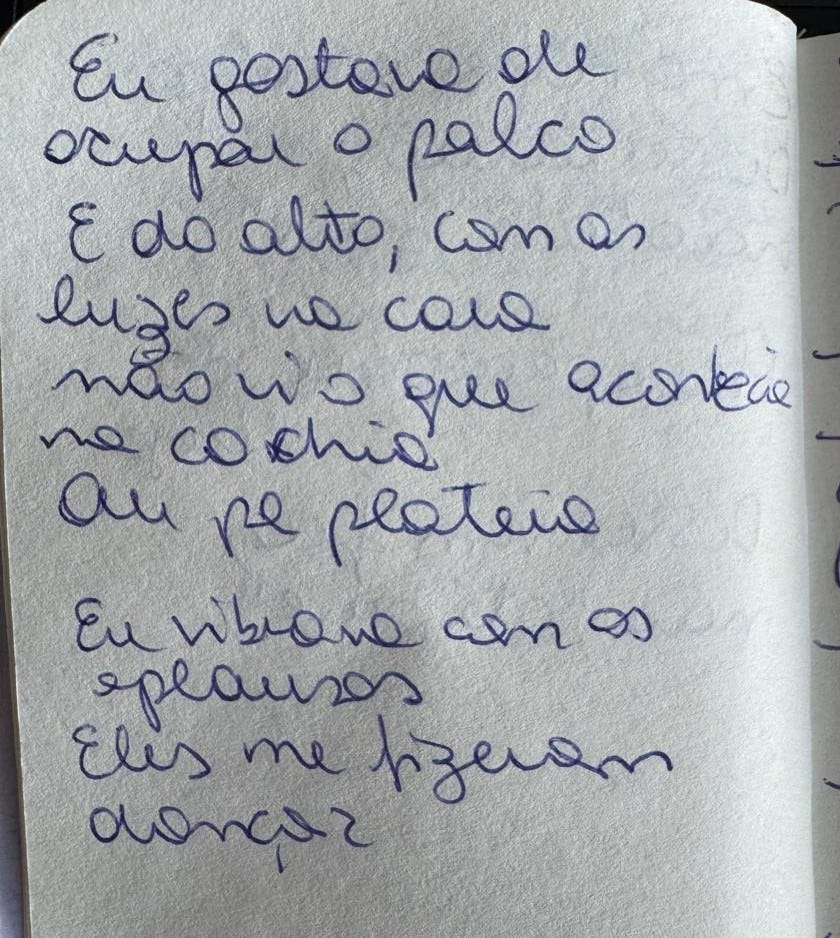 Eu gostava de
ocupar o palco
E do alto, com as
luzes na cara
não vi o que acontecia
na cochia
Ou na plateia
Eu vibrava com os
aplausos
Eles me fizeram
dançar